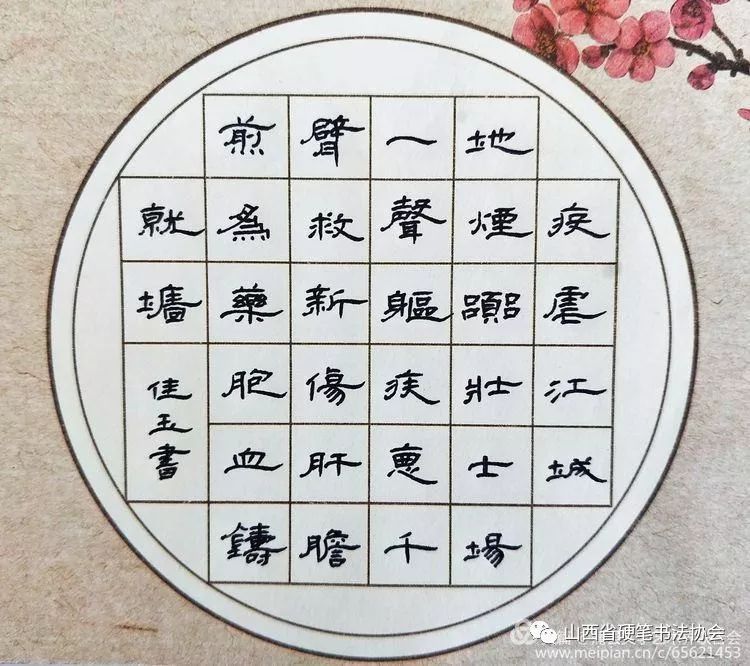 疫虐江城
地煙囂壯士場
一聲軀疾惠千
臂救新傷肝膽
煎為藥胞血鑄
就墻
佳玉書
山西省硬笔书法协会
www.meipian.cn/c/65621453